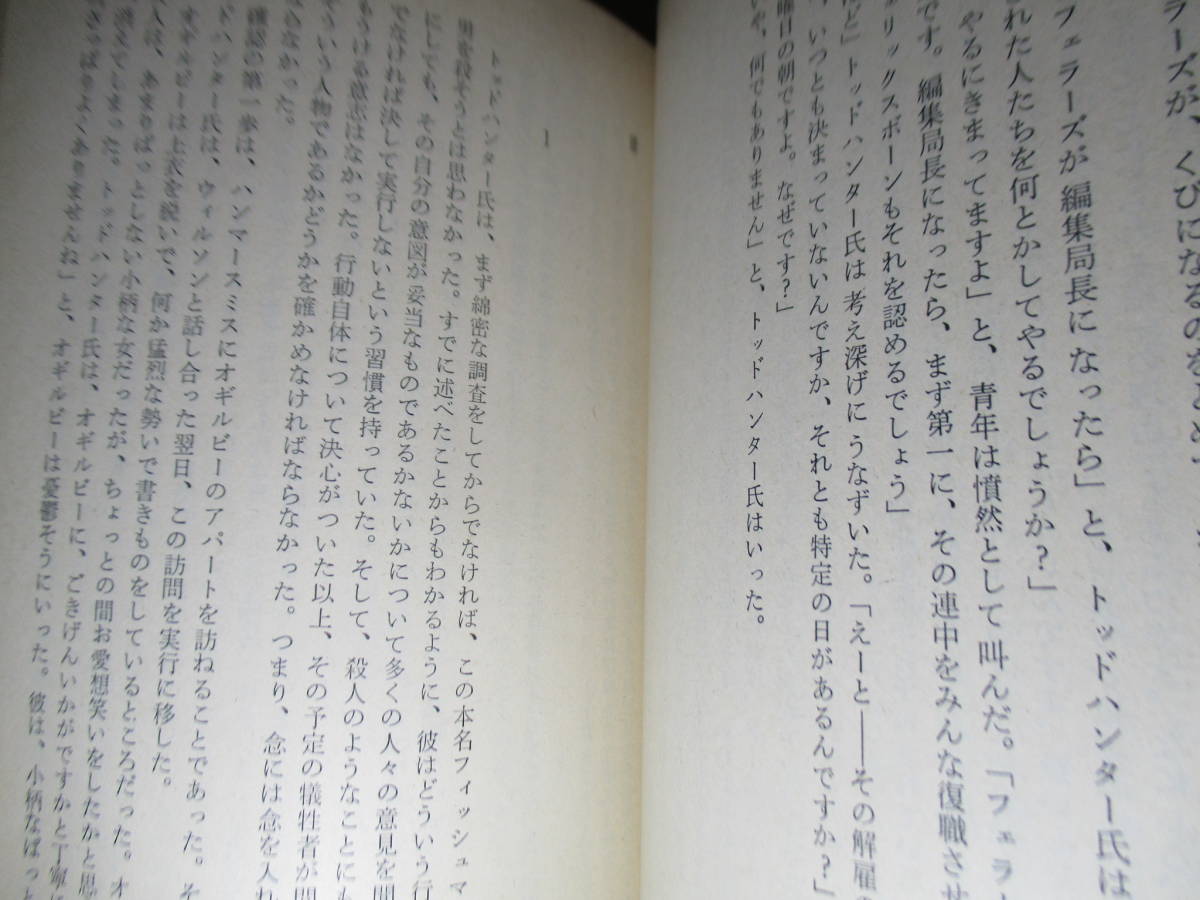 ラーズが、くびになるのをと
フェラーズが編集局長になったら」と、トッドハンター氏は
された人たちを何とかしてやるでしょうか？」
やるにきまってますよ」と、青年は憤然として叫んだ。「フェラ
です。編集局長になったら、まず第一に、その連中をみんな復職させ
ェリックスボーンもそれを認めるでしょう」
ほど」トッドハンター氏は考え深げにうなずいた。「えーと――その解雇の
、いつとも決まっていないんですか、それとも特定の日があるんですか？」
曜日の朝ですよ。なぜです？」
いや、何でもありません」と、トッドハンター氏はいった。
1
トッドハンター氏は、まず綿密な調査をしてからでなければ、この本名フィッシュマ
明害殺そうとは思わなかった。すでに述べたことからもわかるように、彼はどういう行
にしても、その自分の意図が妥当なものであるかないかについて多くの人々の意見を聞
でなければ決して実行しないという習慣を持っていた。そして、殺人のようなことにも
もうける意志はなかった。行動自体について決心がついた以上、その予定の犠牲者が間
そういう人物であるかどうかを確かめなければならなかった。つまり、念には念を入れ
込なかった。
確認の第一歩は、ハンマースミスにオギルビーのアパートを訪ねることであった。そ
ドハンター氏は、ウィルソンと話し合った翌日、この訪問を実行に移した。
オギルビーは上衣を脱いで、何か猛烈な勢いで書きものをしているところだった。オ
人は、あまりぱっとしない小柄な女だったが、ちょっとの間お愛想笑いをしたかと思
消えてしまった。トッドハンター氏は、オギルビーに、ごきげんいかがですかと丁寧に
さっぱりよくありませんね」と、オギルビーは憂鬱そうにいった。彼は、小柄なぱっと